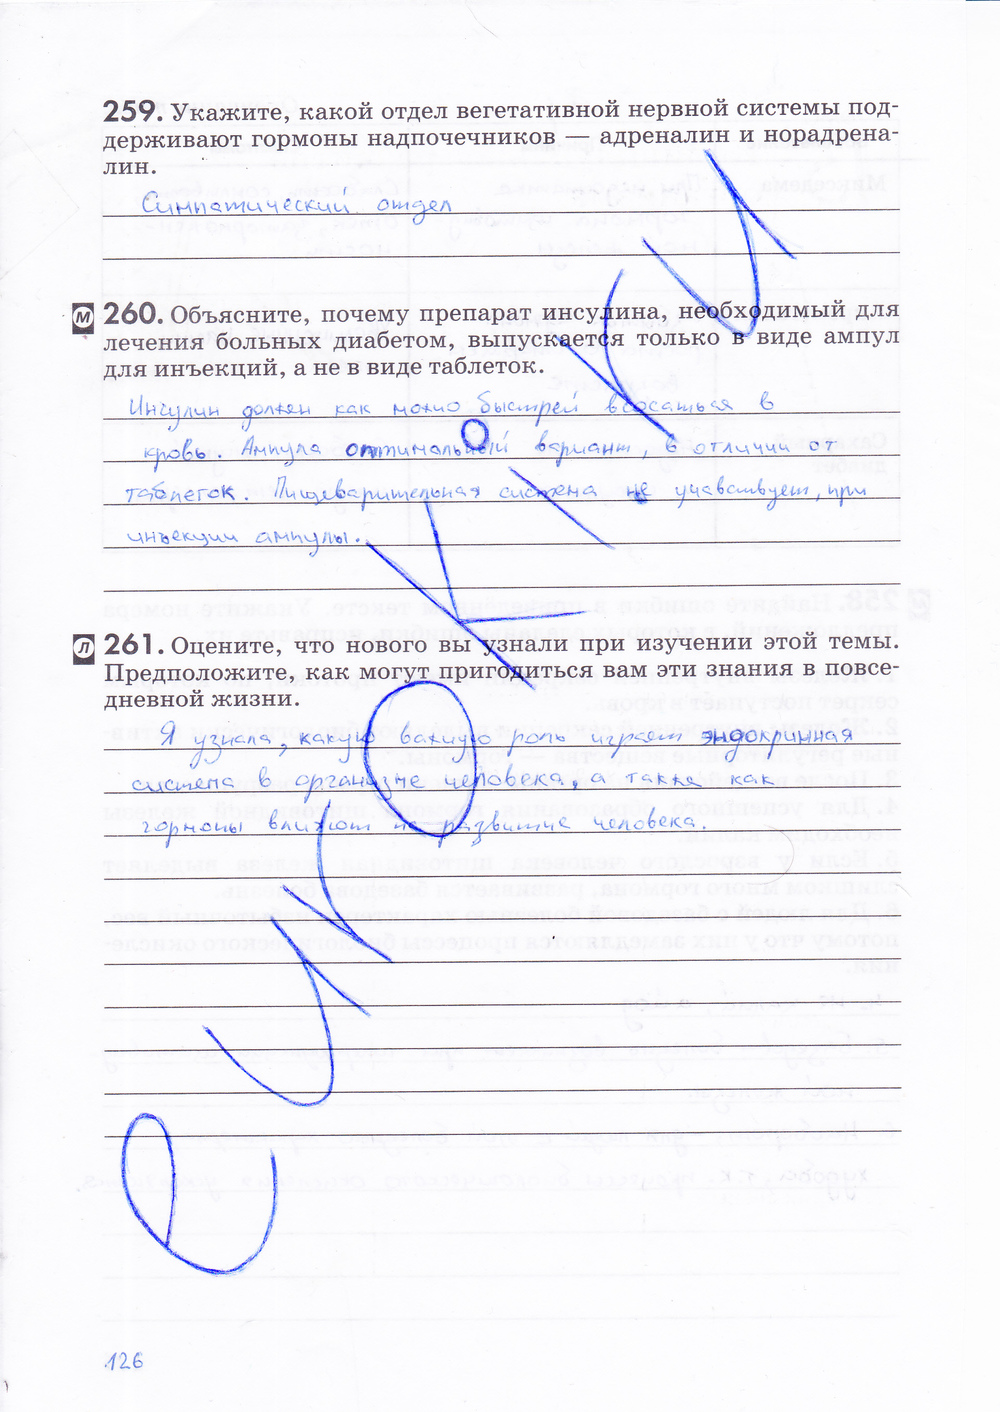 259. Укажите, какой отдел вегетативной нервной системы под-
держивают гормоны надпочечников — адреналин и норадрена-
лин.
Симпатический отдел
М 260. Объясните, почему препарат инсулина, необходимый для
лечения больных диабетом, выпускается только в виде ампул
для инъекций, а не в виде таблеток.
Инсулин должен как можно быстрей всосаться в
кровь. Ампула оптимальный вариант, в отличии от
таблеток. Пищеварительная система не учавствует, при
инъекции ампулы.
Л 261. Оцените, что нового вы узнали при изучении этой темы.
Предположите, как могут пригодиться вам эти знания в повсе-
дневной жизни.
Я узнала, какую важную роль играет эндокринная
система в организме человека, а также как
гормоны влияют на развитие человека.
126